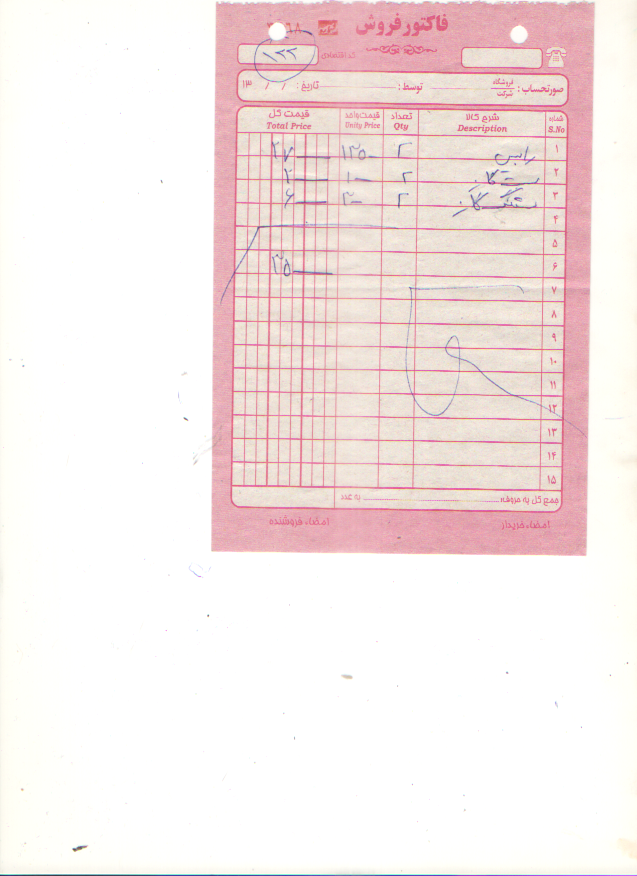 فاکتور فروش
۱۲۲ کد اقتصادی
صورتحساب : فروشگاه شرکت توسط : تاریخ : / / ۱۳
شماره S.No شرح کالا Description تعداد Qty قیمت واحد Unity Price قیمت کل Total Price
۱ ۲ ۱۳۵۰ ۲۷
۲ ۲ ۱۰ ۲
۳ ۲ ۳۰ ۶
۴
۵
۶ ۳۵
۷
۸
۹
۱۰
۱۱
۱۲
۱۳
۱۴
۱۵
جمع کل به حروف به عدد
امضاء خریدار امضاء فروشنده